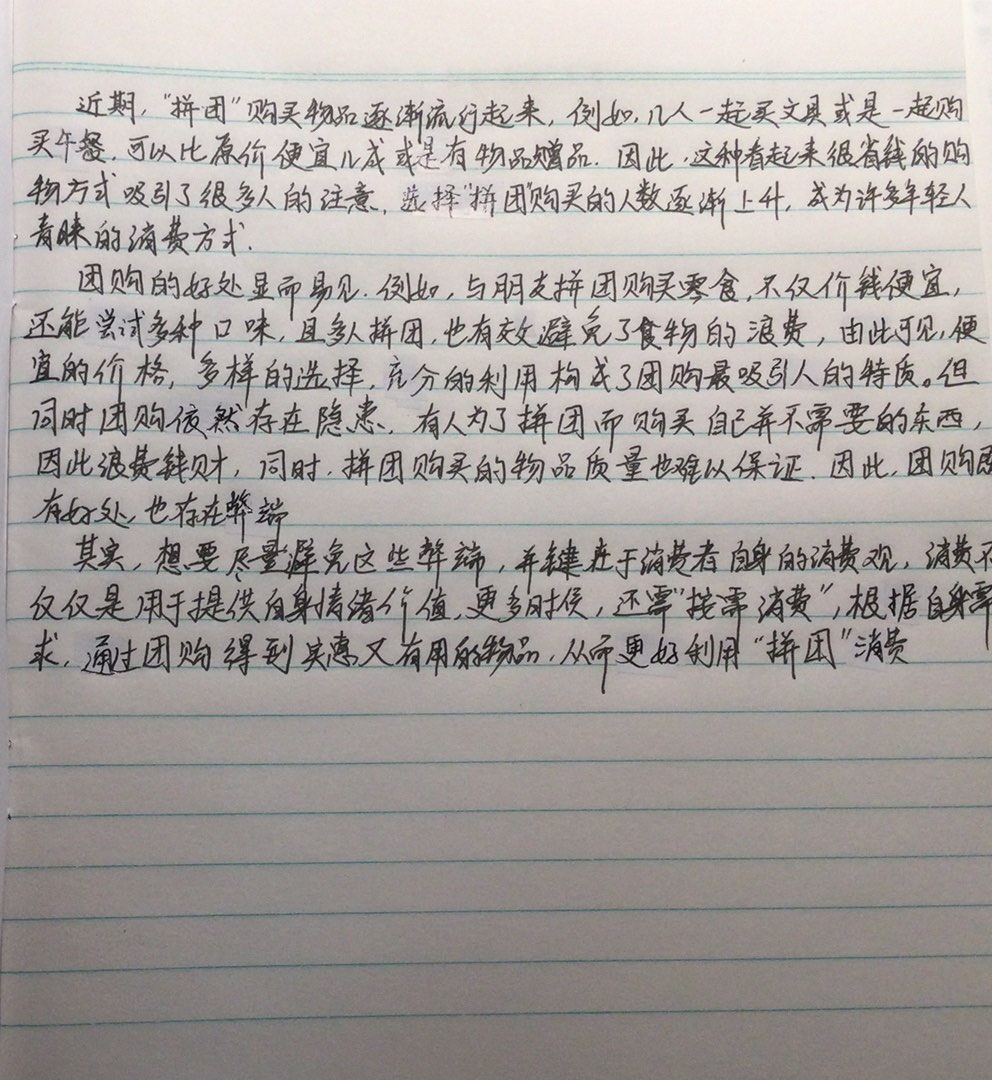 近期，“拼团”购买物品逐渐流行起来，例如，几人一起买文具或是一起购
买午餐，可以比原价便宜几成或是有物品赠品．因此，这种看起来很省钱的购
物方式吸引了很多人的注意，选择“拼团”购买的人数逐渐上升，成为许多年轻人
青睐的消费方式．
团购的好处显而易见．例如，与朋友拼团购买零食，不仅价钱便宜，
还能尝试多种口味，且多人拼团，也有效避免了食物的浪费，由此可见，便
宜的价格，多样的选择，充分的利用构成了团购最吸引人的特质。但
同时团购依然存在隐患，有人为了拼团而购买自己并不需要的东西，
因此浪费钱财，同时，拼团购买的物品质量也难以保证．因此，团购既
有好处，也存在弊端
其实，想要尽量避免这些弊端，关键在于消费者自身的消费观，消费不
仅仅是用于提供自身情绪价值，更多时候，还需“按需消费”，根据自身需
求，通过团购得到实惠又有用的物品，从而更好利用“拼团”消费